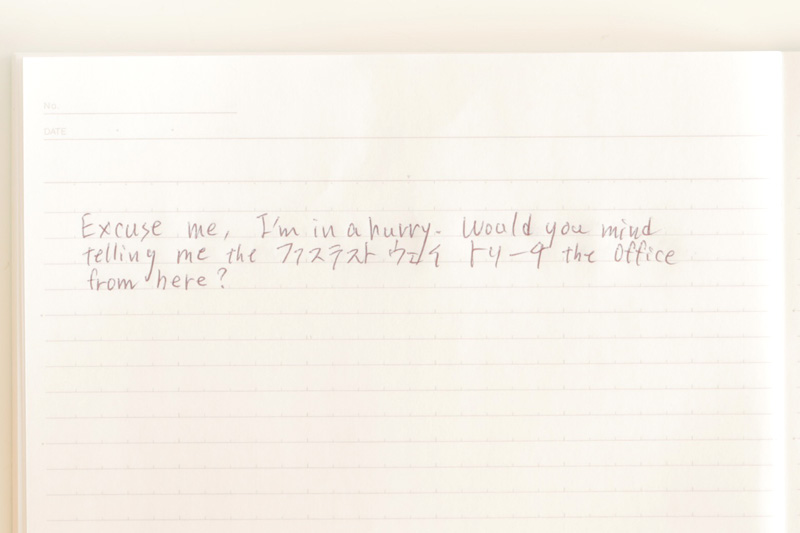 No.
DATE
Excuse me, I'm in a hurry. Would you mind
telling me the ファステスト ウェイ トリーチ the Office
from here?